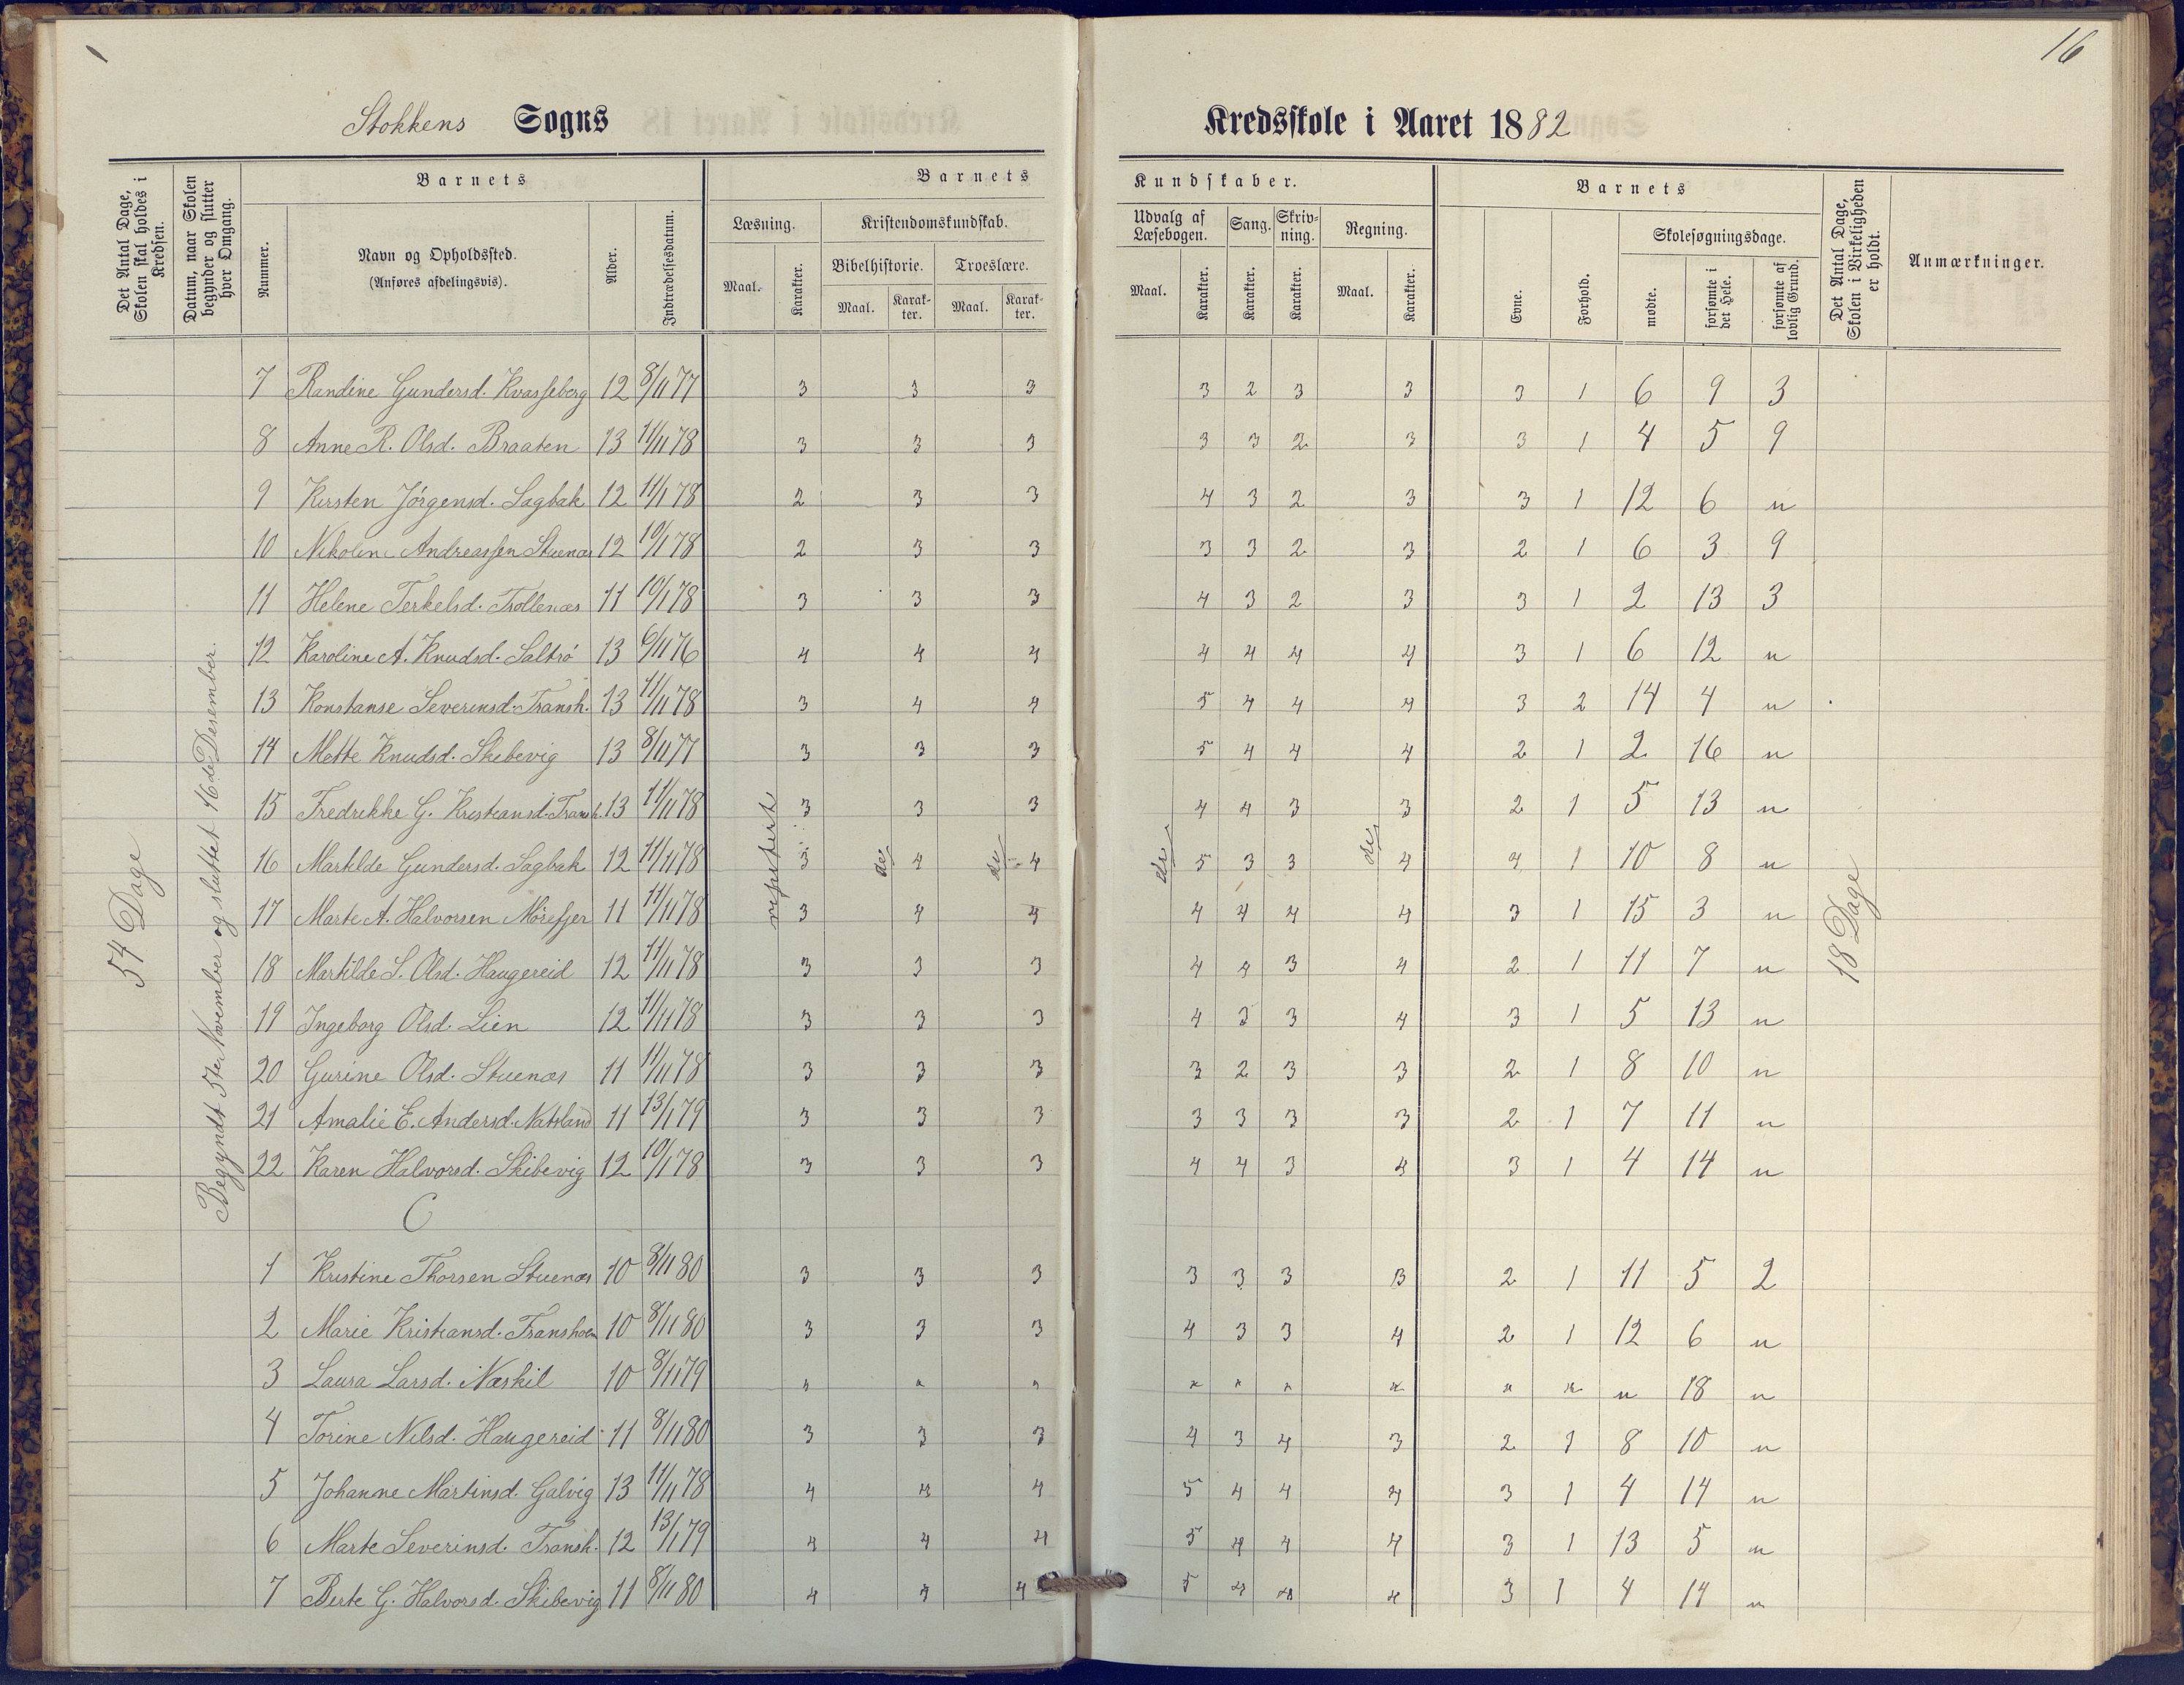 16
Stokkens Sogns Kredsskole i Aaret 1882
Det Antal Dage, Skolen skal holdes i Kredsen.
Datum, naar Skolen begynder og slutter hver Omgang.
Barnets
Nummer.
Navn og Opholdssted.
(Anføres afdelingsvis).
Alder.
Indtrædelsesdatum.
Barnets Kundskaber.
Læsning.
Maal.
Karakter.
Kristendomskundskab.
Bibelhistorie.
Maal.
Karakter.
Troeslære.
Maal.
Karakter.
Udvalg af Læsebogen.
Maal.
Karakter.
Sang.
Karakter.
Skrivning.
Karakter.
Regning.
Maal.
Karakter.
Barnets
Evne.
Forhold.
Skolesøgningsdage.
mødte.
forsømte i det Hele.
forsømte af lovlig Grund.
Det Antal Dage, Skolen i Virkeligheden er holdt.
Anmærkninger.
54 Dage
Begyndt 5te November og sluttet 16de Desember.
repetert
do
do
do
do
18 Dage
7 Randine Gundersd. Kvasseberg 12 8/11 77 3 3 3 3 2 3 3 3 1 6 9 3
8 Anne R. Olsd. Braaten 13 11/11 78 3 3 3 3 3 2 3 3 1 4 5 9
9 Kirsten Jørgensd. Sagbak 12 11/1 78 2 3 3 4 3 2 3 3 1 12 6 "
10 Nikoline Andreassen Stuenæs 12 10/1 78 2 3 3 3 3 2 3 2 1 6 3 9
11 Helene Terkelsd. Trollenæs 11 10/1 78 3 3 3 4 3 2 3 3 1 2 13 3
12 Karoline A. Knudsd. Saltrø 13 6/11 76 4 4 4 4 4 4 4 3 1 6 12 "
13 Konstanse Severinsd. Transh. 13 11/11 78 3 4 4 5 4 4 4 3 2 14 4 "
14 Mette Knudsd. Skibevig 13 8/11 77 3 3 3 5 4 4 4 2 1 2 16 "
15 Fredrikke G. Kristiansd. Transh. 13 11/11 78 3 3 3 4 4 3 3 2 1 5 13 "
16 Martilde Gundersd. Sagbak 12 11/11 78 3 4 4 5 3 3 4 4 1 10 8 "
17 Marte A. Halvorsen Mørefjer 11 11/11 78 3 4 4 4 4 4 4 3 1 15 3 "
18 Martilde S. Olsd. Haugereid 12 11/11 78 3 3 3 4 4 3 4 2 1 11 7 "
19 Ingeborg Olsd. Lien 12 11/11 78 3 3 3 4 3 3 4 3 1 5 13 "
20 Gurine Olsd. Stuenæs 11 11/11 78 3 3 3 3 2 3 3 2 1 8 10 "
21 Amalie E. Andersd. Natvland 11 13/1 79 3 3 3 3 3 3 3 2 1 7 11 "
22 Karen Halvorsd. Skibevig 12 10/1 78 3 3 3 4 4 3 4 3 1 4 14 "
C
1 Kristine Thorsen Stuenæs 10 8/11 80 3 3 3 3 3 3 3 2 1 11 5 2
2 Marie Kristiansd. Transholm 10 8/11 80 3 3 3 4 3 3 4 2 1 12 6 "
3 Laura Larsd. Næskil 10 8/11 79 " " " " " " " " " " 18 "
4 Torine Nilsd. Haugereid 11 8/11 80 3 3 3 4 3 4 3 2 1 8 10 "
5 Johanne Martinsd. Galvig 13 11/11 78 4 4 4 5 4 4 4 3 1 4 14 "
6 Marte Severinsd. Transh. 12 13/1 79 4 4 4 5 4 4 4 3 1 13 5 "
7 Berte G. Halvorsd. Skibevig 11 8/11 80 4 4 4 5 4 4 4 3 1 4 14 "